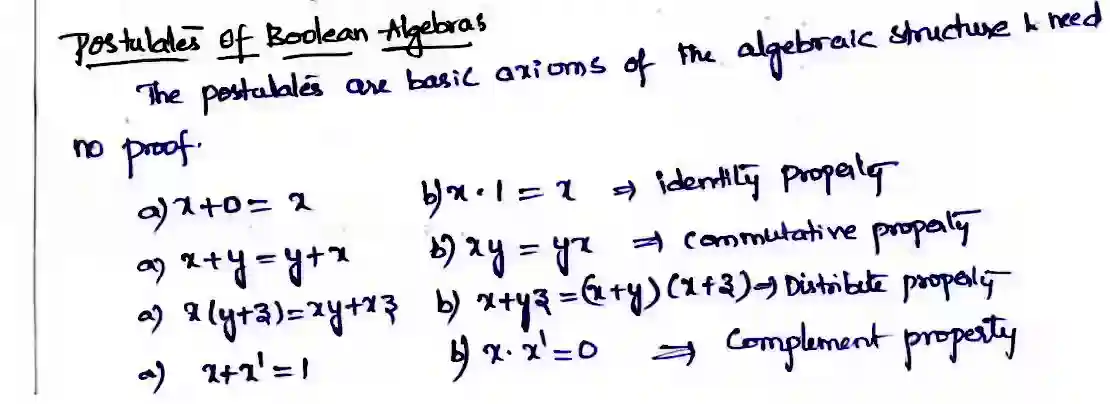 Postulates of Boolean Algebras
The postulates are basic axioms of the algebraic structure & need
no proof.
a) x+0= x b) x·1 = x ⇒ identity property
a) x+y = y+x b) xy = yx ⇒ commutative property
a) x(y+z)=xy+xz b) x+yz =(x+y)(x+z)⇒ Distribute property
a) x+x'=1 b) x·x'=0 ⇒ Complement property